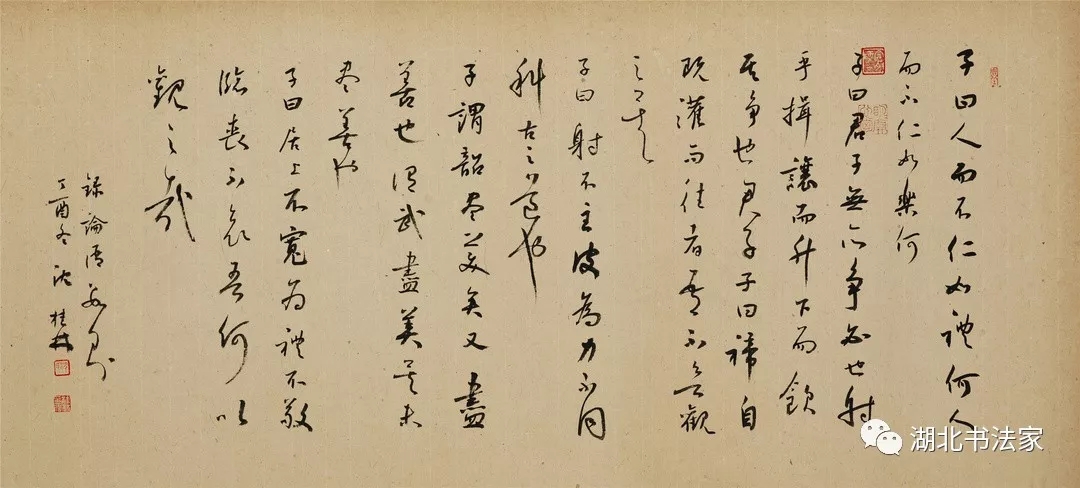 子曰人而不仁如禮何人
而不仁如樂何
子曰君子無所争必也射
乎揖讓而升下而飲
其争也君子子曰禘自
既灌而往者吾不欲觀
之矣
子曰射不主皮為力不同
科古之道也
子謂韶尽美矣又盡
善也謂武盡美矣未
尽善也
子曰居上不寬為禮不敬
臨喪不哀吾何以
觀之哉
録論語數則
丁酉冬沈桂林
湖北书法家